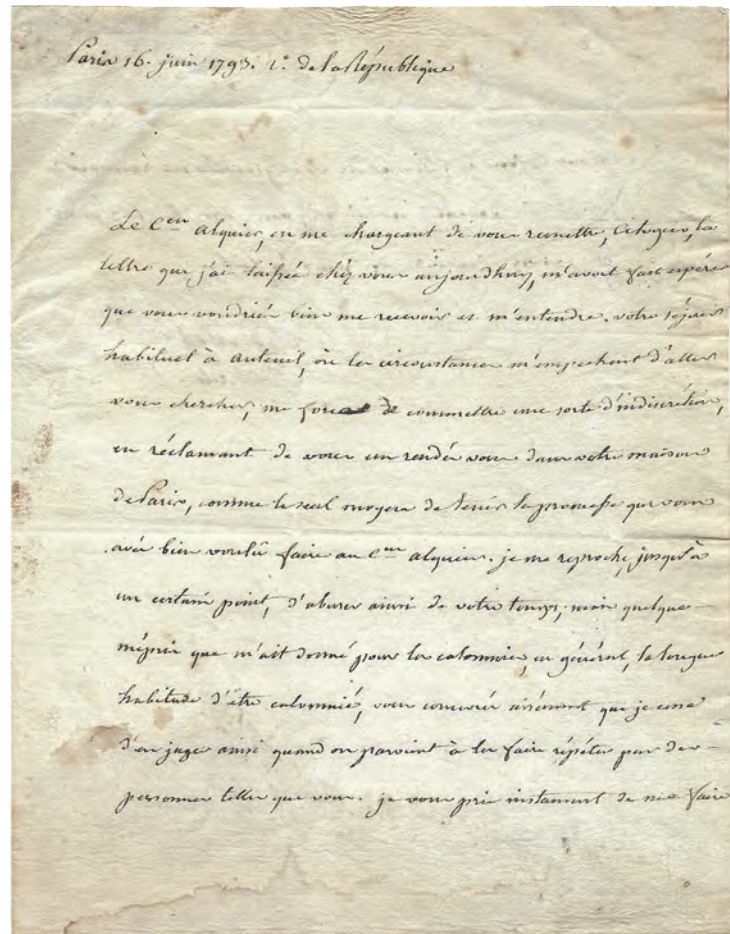 Paris 16. juin 1793. 2e. de la République
Le Cen alquier, en me chargeant de vous remettre, Citoyen, la
lettre que j'ai laissée chéz vous aujourdhuy, m'avoit fait espérer
que vous voudriéz bien me recevoir et m'entendre. votre séjour
habituel à auteuil, où les circonstances m'empechent d'aller
vous chercher, me force de commettre une sorte d'indiscrétion,
en réclamant de vous un rendéz vous dans votre maison
de Paris, comme le seul moyen de tenir la promesse que vous
avéz bien voulû faire au Cen alquier. je me reproche, jusqu'à
un certain point, d'abuser ainsi de votre temps; mais quelque
mépris que m'ait donné pour les calomnies, en général, la longue
habitude d'être calomnié, vous concevéz aisément que je cesse
d'en juger ainsi quand on parvient à les faire répéter par des
personnes telles que vous. je vous prie instament de me faire